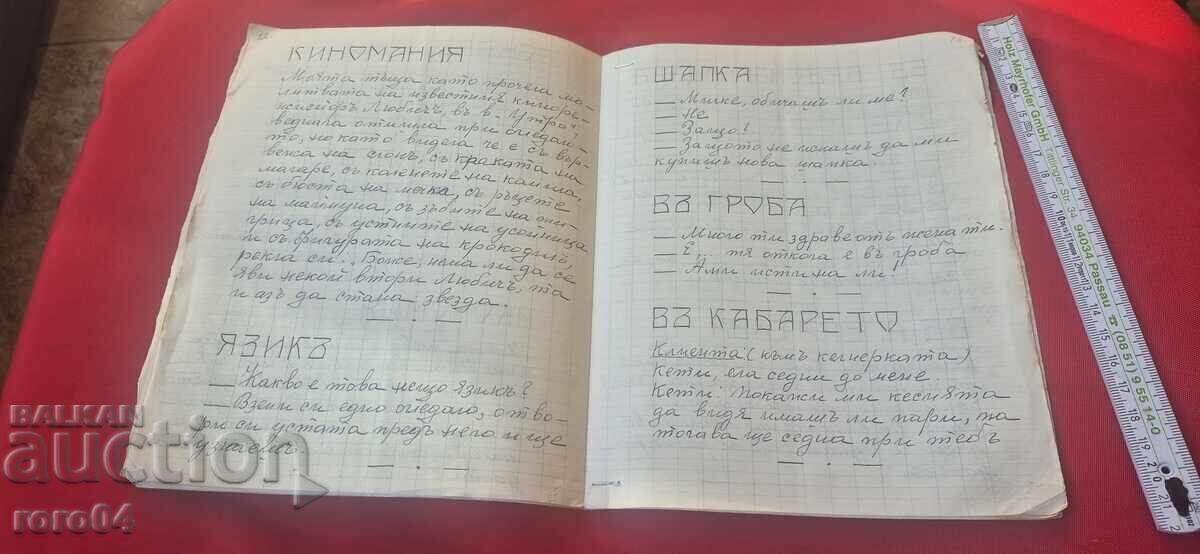 12
КИНОМАНИЯ
Моята тъща като прочела мо-
литвата на известния кино ре-
жисьоръ Любичъ, въ в. "Утро",
веднага отишла при огледало-
то, но като видела че е съ вър-
вежа на слонъ, съ краката на
магаре, съ коленете на камила,
съ бюста на мечка, съ ръцете
на маймуна, съ зъбите на ти-
грица, съ устните на усойница
и съ фигурата на крокодилъ,
рекла си: Боже, нема ли да се
яви некой втори Любичъ, та
и азъ да стана звезда.
ЯЗИКЪ
— Какво е това нещо язикъ?
— Вземи си едно огледало, отво-
ри си устата предъ него и ще
узнаешъ.
ШАПКА
— Милке, обичашъ ли ме?
— Не
— Защо!
— Защото не искашъ да ми
купишъ нова шапка.
ВЪ ГРОБА
— Много ти здраве отъ жена ти.
— Е, тя откога е въ гроба
— Ами истина ли!
ВЪ КАБАРЕТО
Клиента: (къмъ келнерката)
Кети, ела седни до мене.
Кети: Покажи ми кесията
да видя имашъ ли пари, па
тогава ще седна при тебъ
Holz Mayrhofer GmbH
Tittlinger Str. 34
94034 Passau
☎ (08 51) 9 55 14-0
BALKAN
auction
roro04